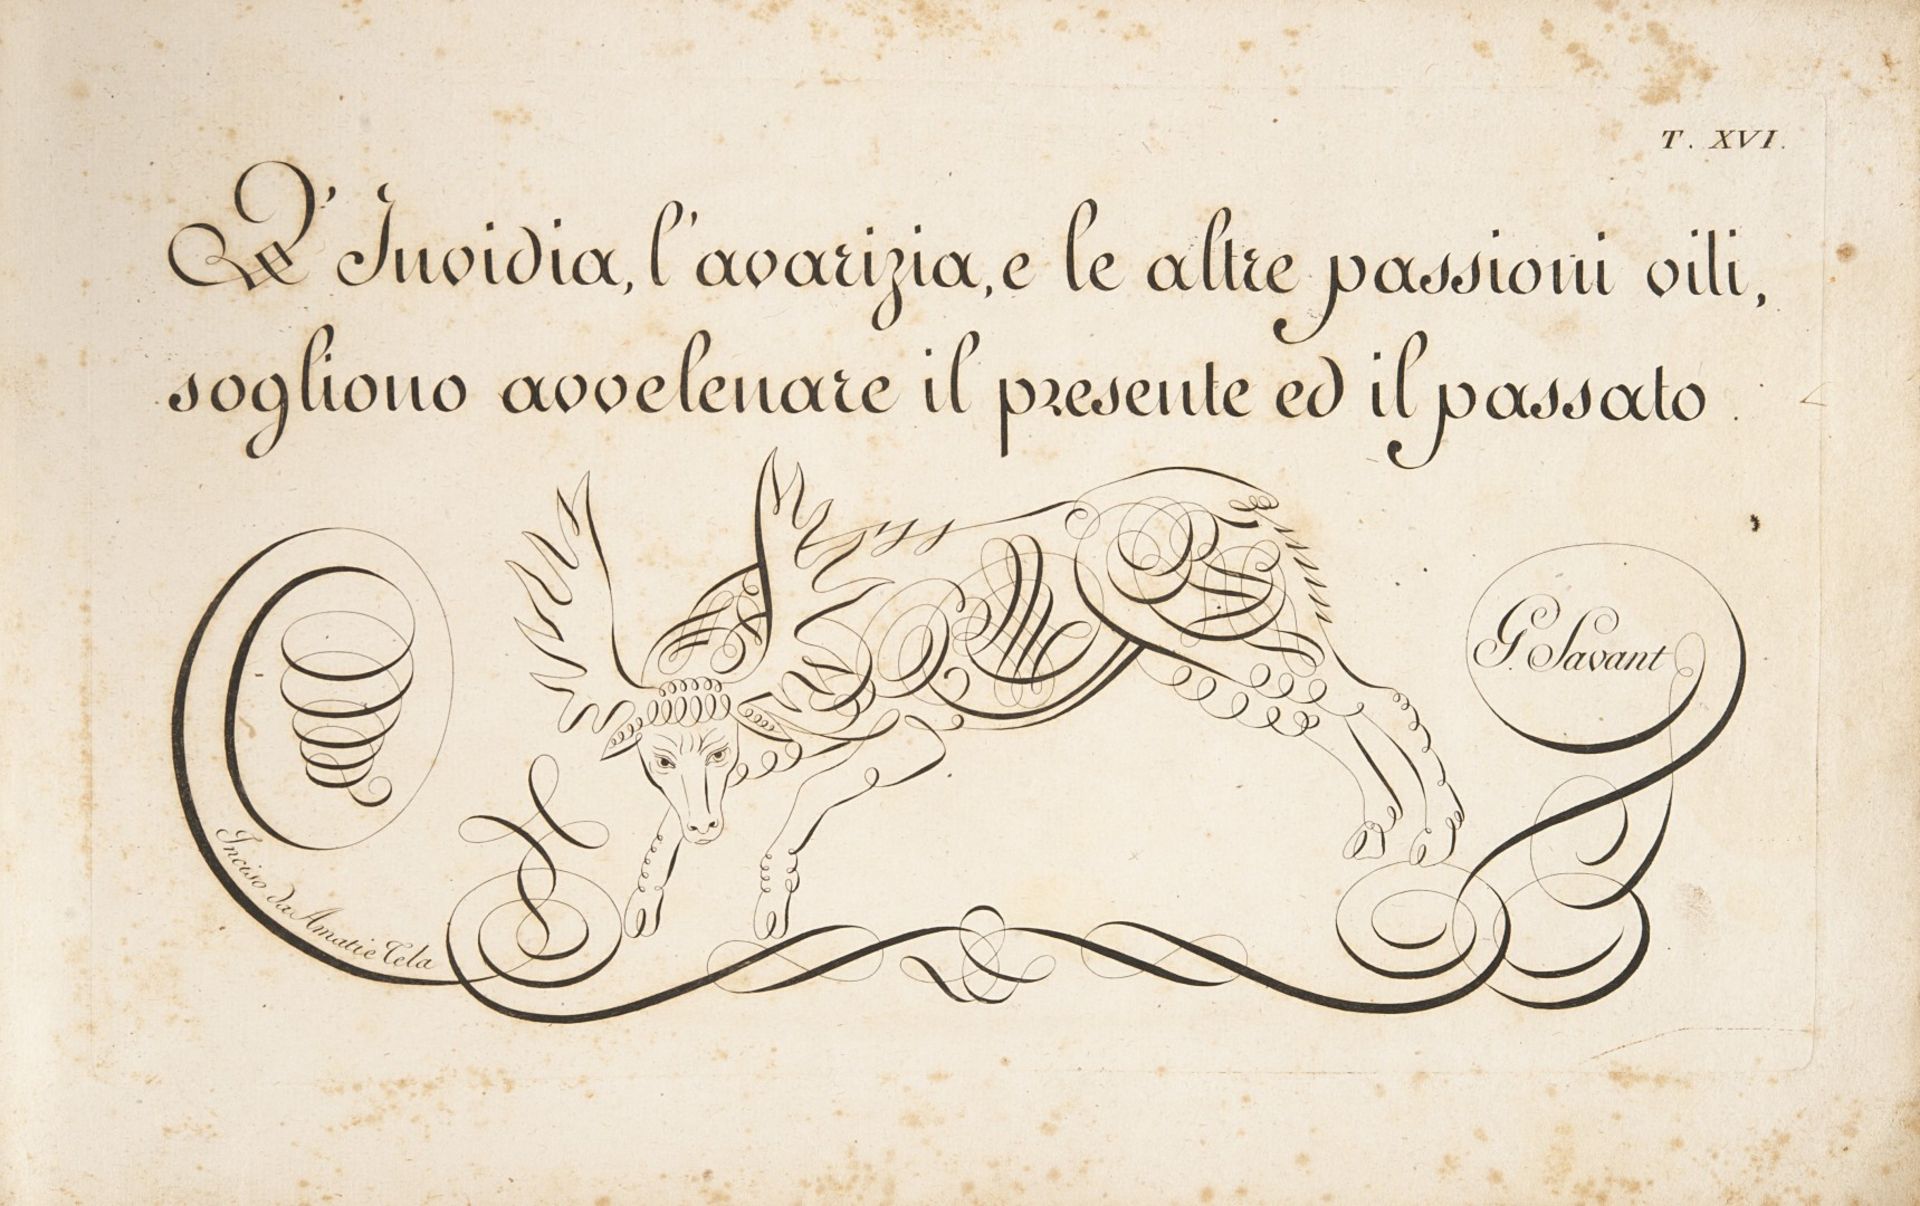 T. XVI.
L' Invidia, l'avarizia, e le altre passioni vili,
sogliono avvelenare il presente ed il passato.
G. Savant
Inciso da Amati e Tela